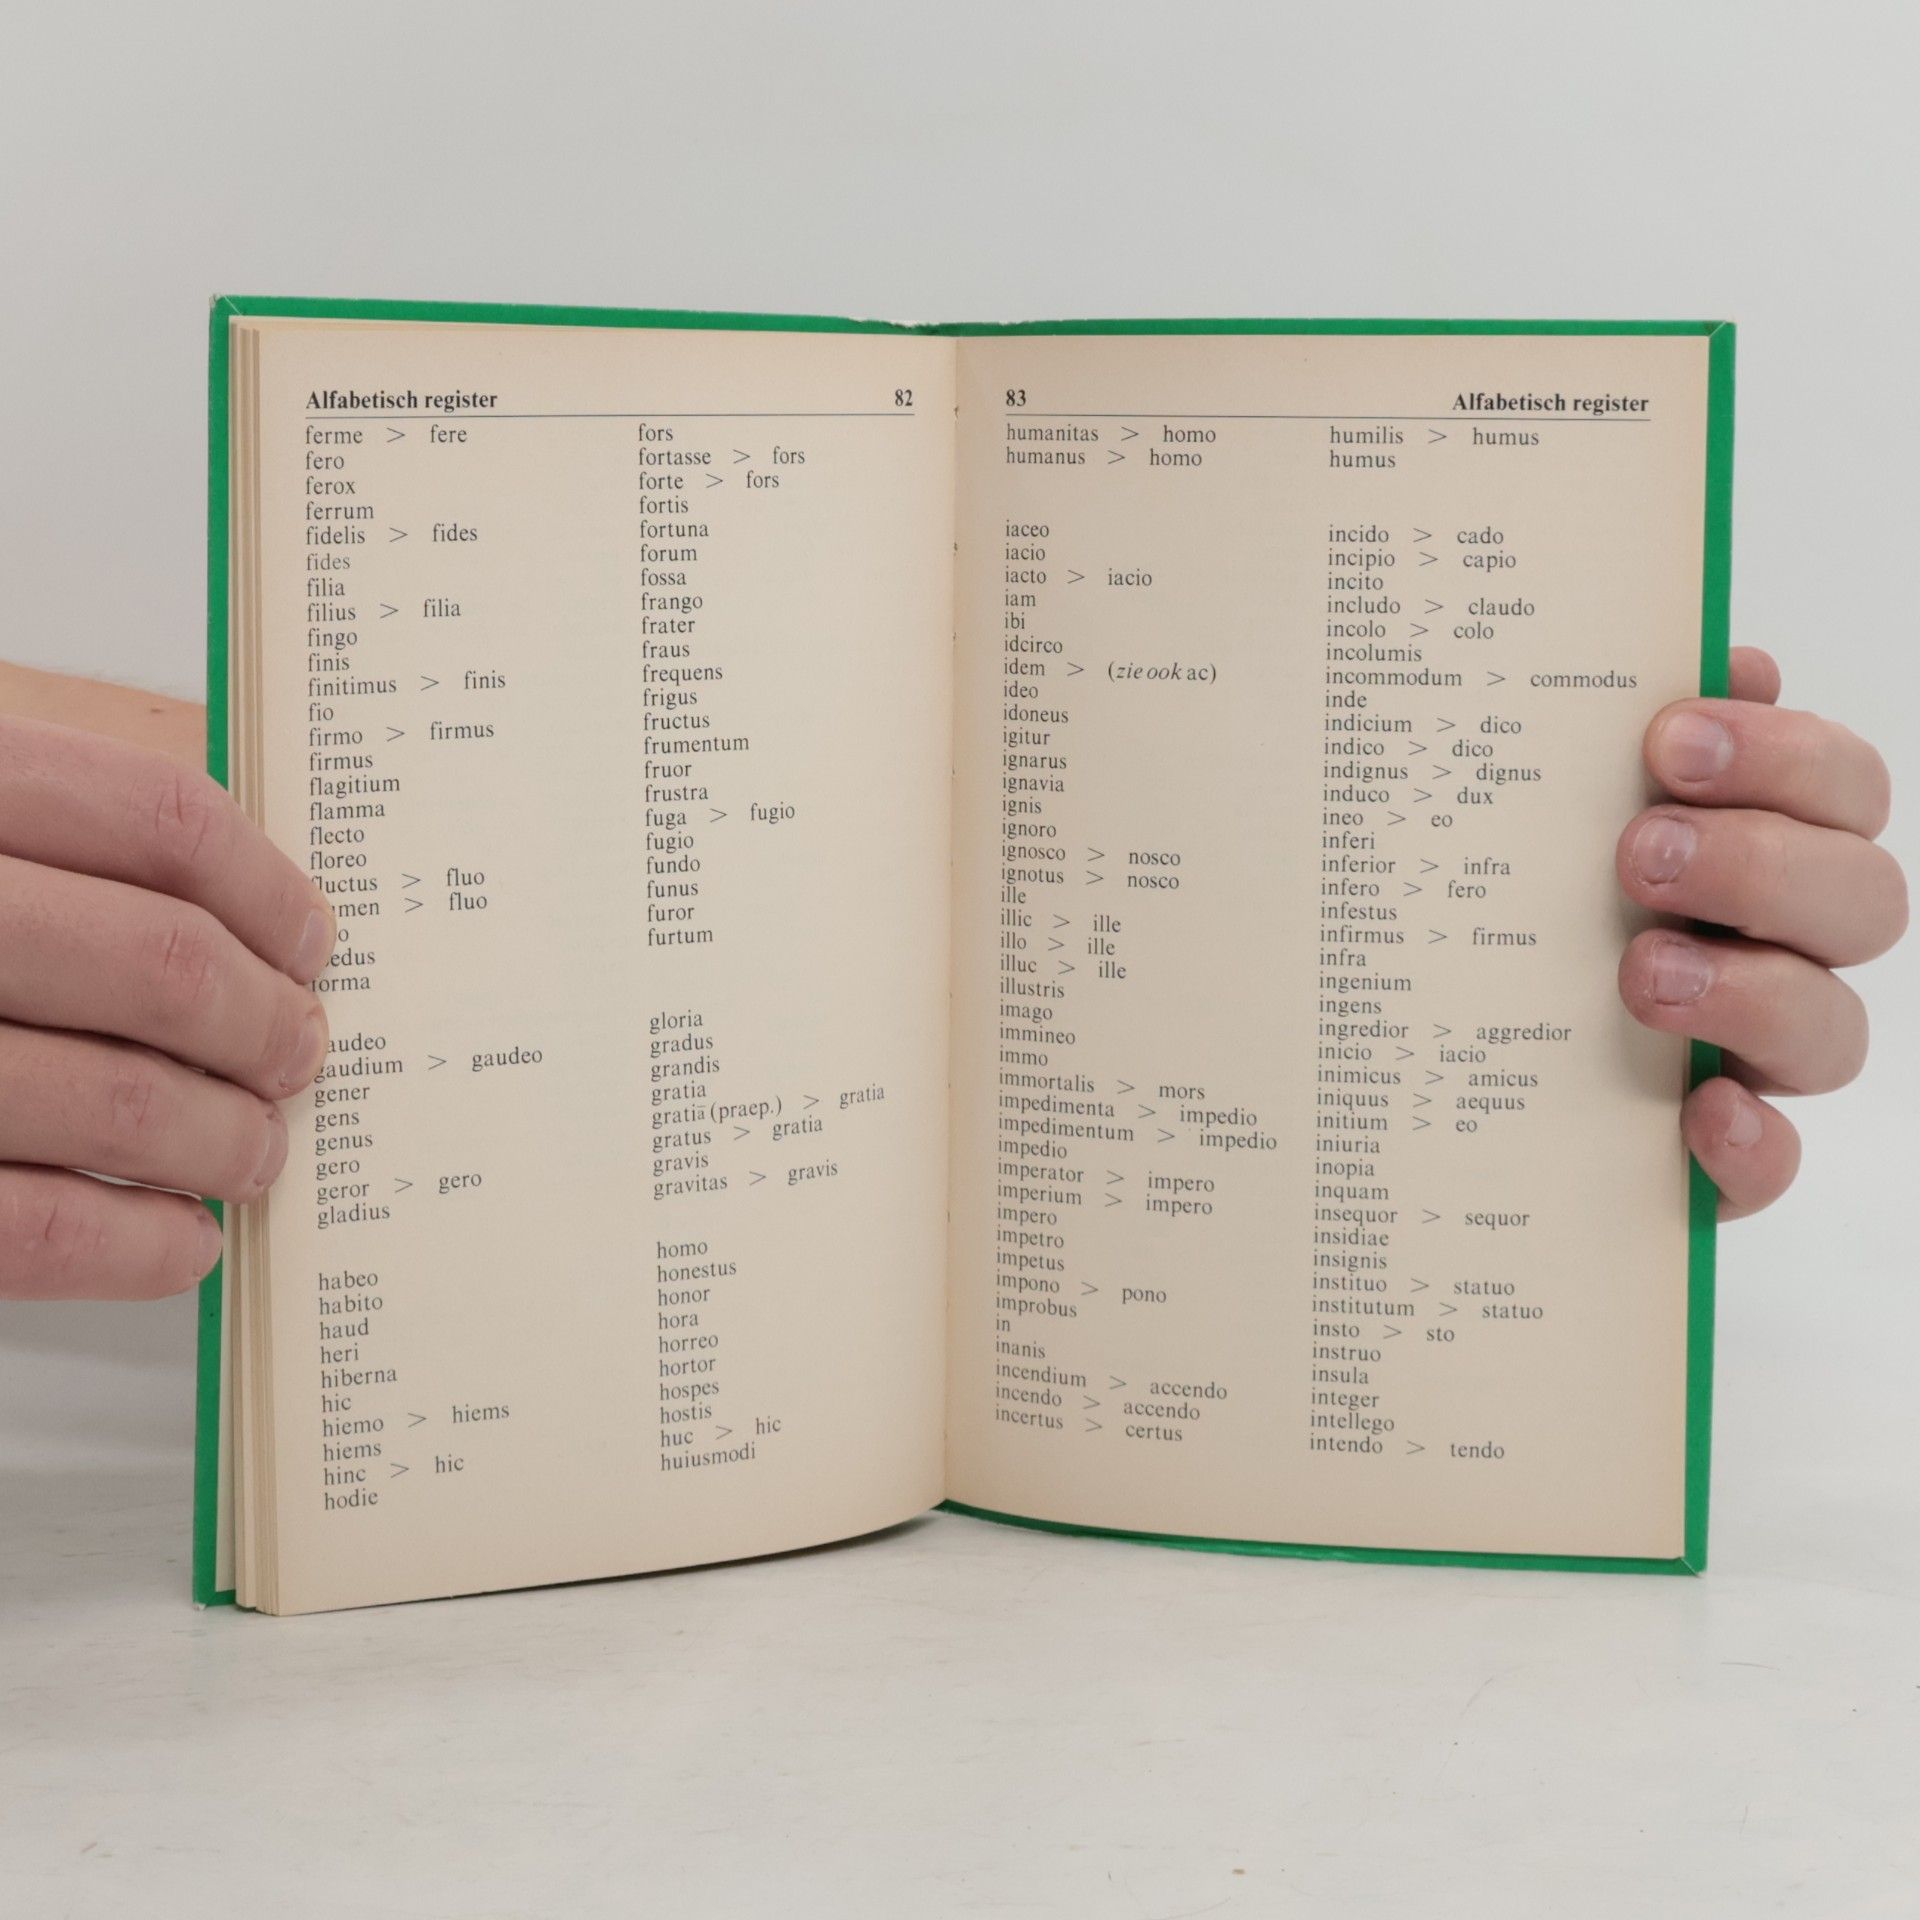 Alfabetisch register 82
ferme > fere
fero
ferox
ferrum
fidelis > fides
fides
filia
filius > filia
fingo
finis
finitimus > finis
fio
firmo > firmus
firmus
flagitium
flamma
flecto
floreo
fluctus > fluo
men > fluo
o
edus
forma
audeo
gaudium > gaudeo
gener
gens
genus
gero
geror > gero
gladius
habeo
habito
haud
heri
hiberna
hic
hiemo > hiems
hiems
hinc > hic
hodie
fors
fortasse > fors
forte > fors
fortis
fortuna
forum
fossa
frango
frater
fraus
frequens
frigus
fructus
frumentum
fruor
frustra
fuga > fugio
fugio
fundo
funus
furor
furtum
gloria
gradus
grandis
gratia
gratiā (praep.) > gratia
gratus > gratia
gravis
gravitas > gravis
homo
honestus
honor
hora
horreo
hortor
hospes
hostis
huc > hic
huiusmodi
83 Alfabetisch register
humanitas > homo
humanus > homo
humilis > humus
humus
iaceo
iacio
iacto > iacio
iam
ibi
idcirco
idem > (zie ook ac)
ideo
idoneus
igitur
ignarus
ignavia
ignis
ignoro
ignosco > nosco
ignotus > nosco
ille
illic > ille
illo > ille
illuc > ille
illustris
imago
immineo
immo
immortalis > mors
impedimenta > impedio
impedimentum > impedio
impedio
imperator > impero
imperium > impero
impero
impetro
impetus
impono > pono
improbus
in
inanis
incendium > accendo
incendo > accendo
incertus > certus
incido > cado
incipio > capio
incito
includo > claudo
incolo > colo
incolumis
incommodum > commodus
inde
indicium > dico
indico > dico
indignus > dignus
induco > dux
ineo > eo
inferi
inferior > infra
infero > fero
infestus
infirmus > firmus
infra
ingenium
ingens
ingredior > aggredior
inicio > iacio
inimicus > amicus
iniquus > aequus
initium > eo
iniuria
inopia
inquam
insequor > sequor
insidiae
insignis
instituo > statuo
institutum > statuo
insto > sto
instruo
insula
integer
intellego
intendo > tendo